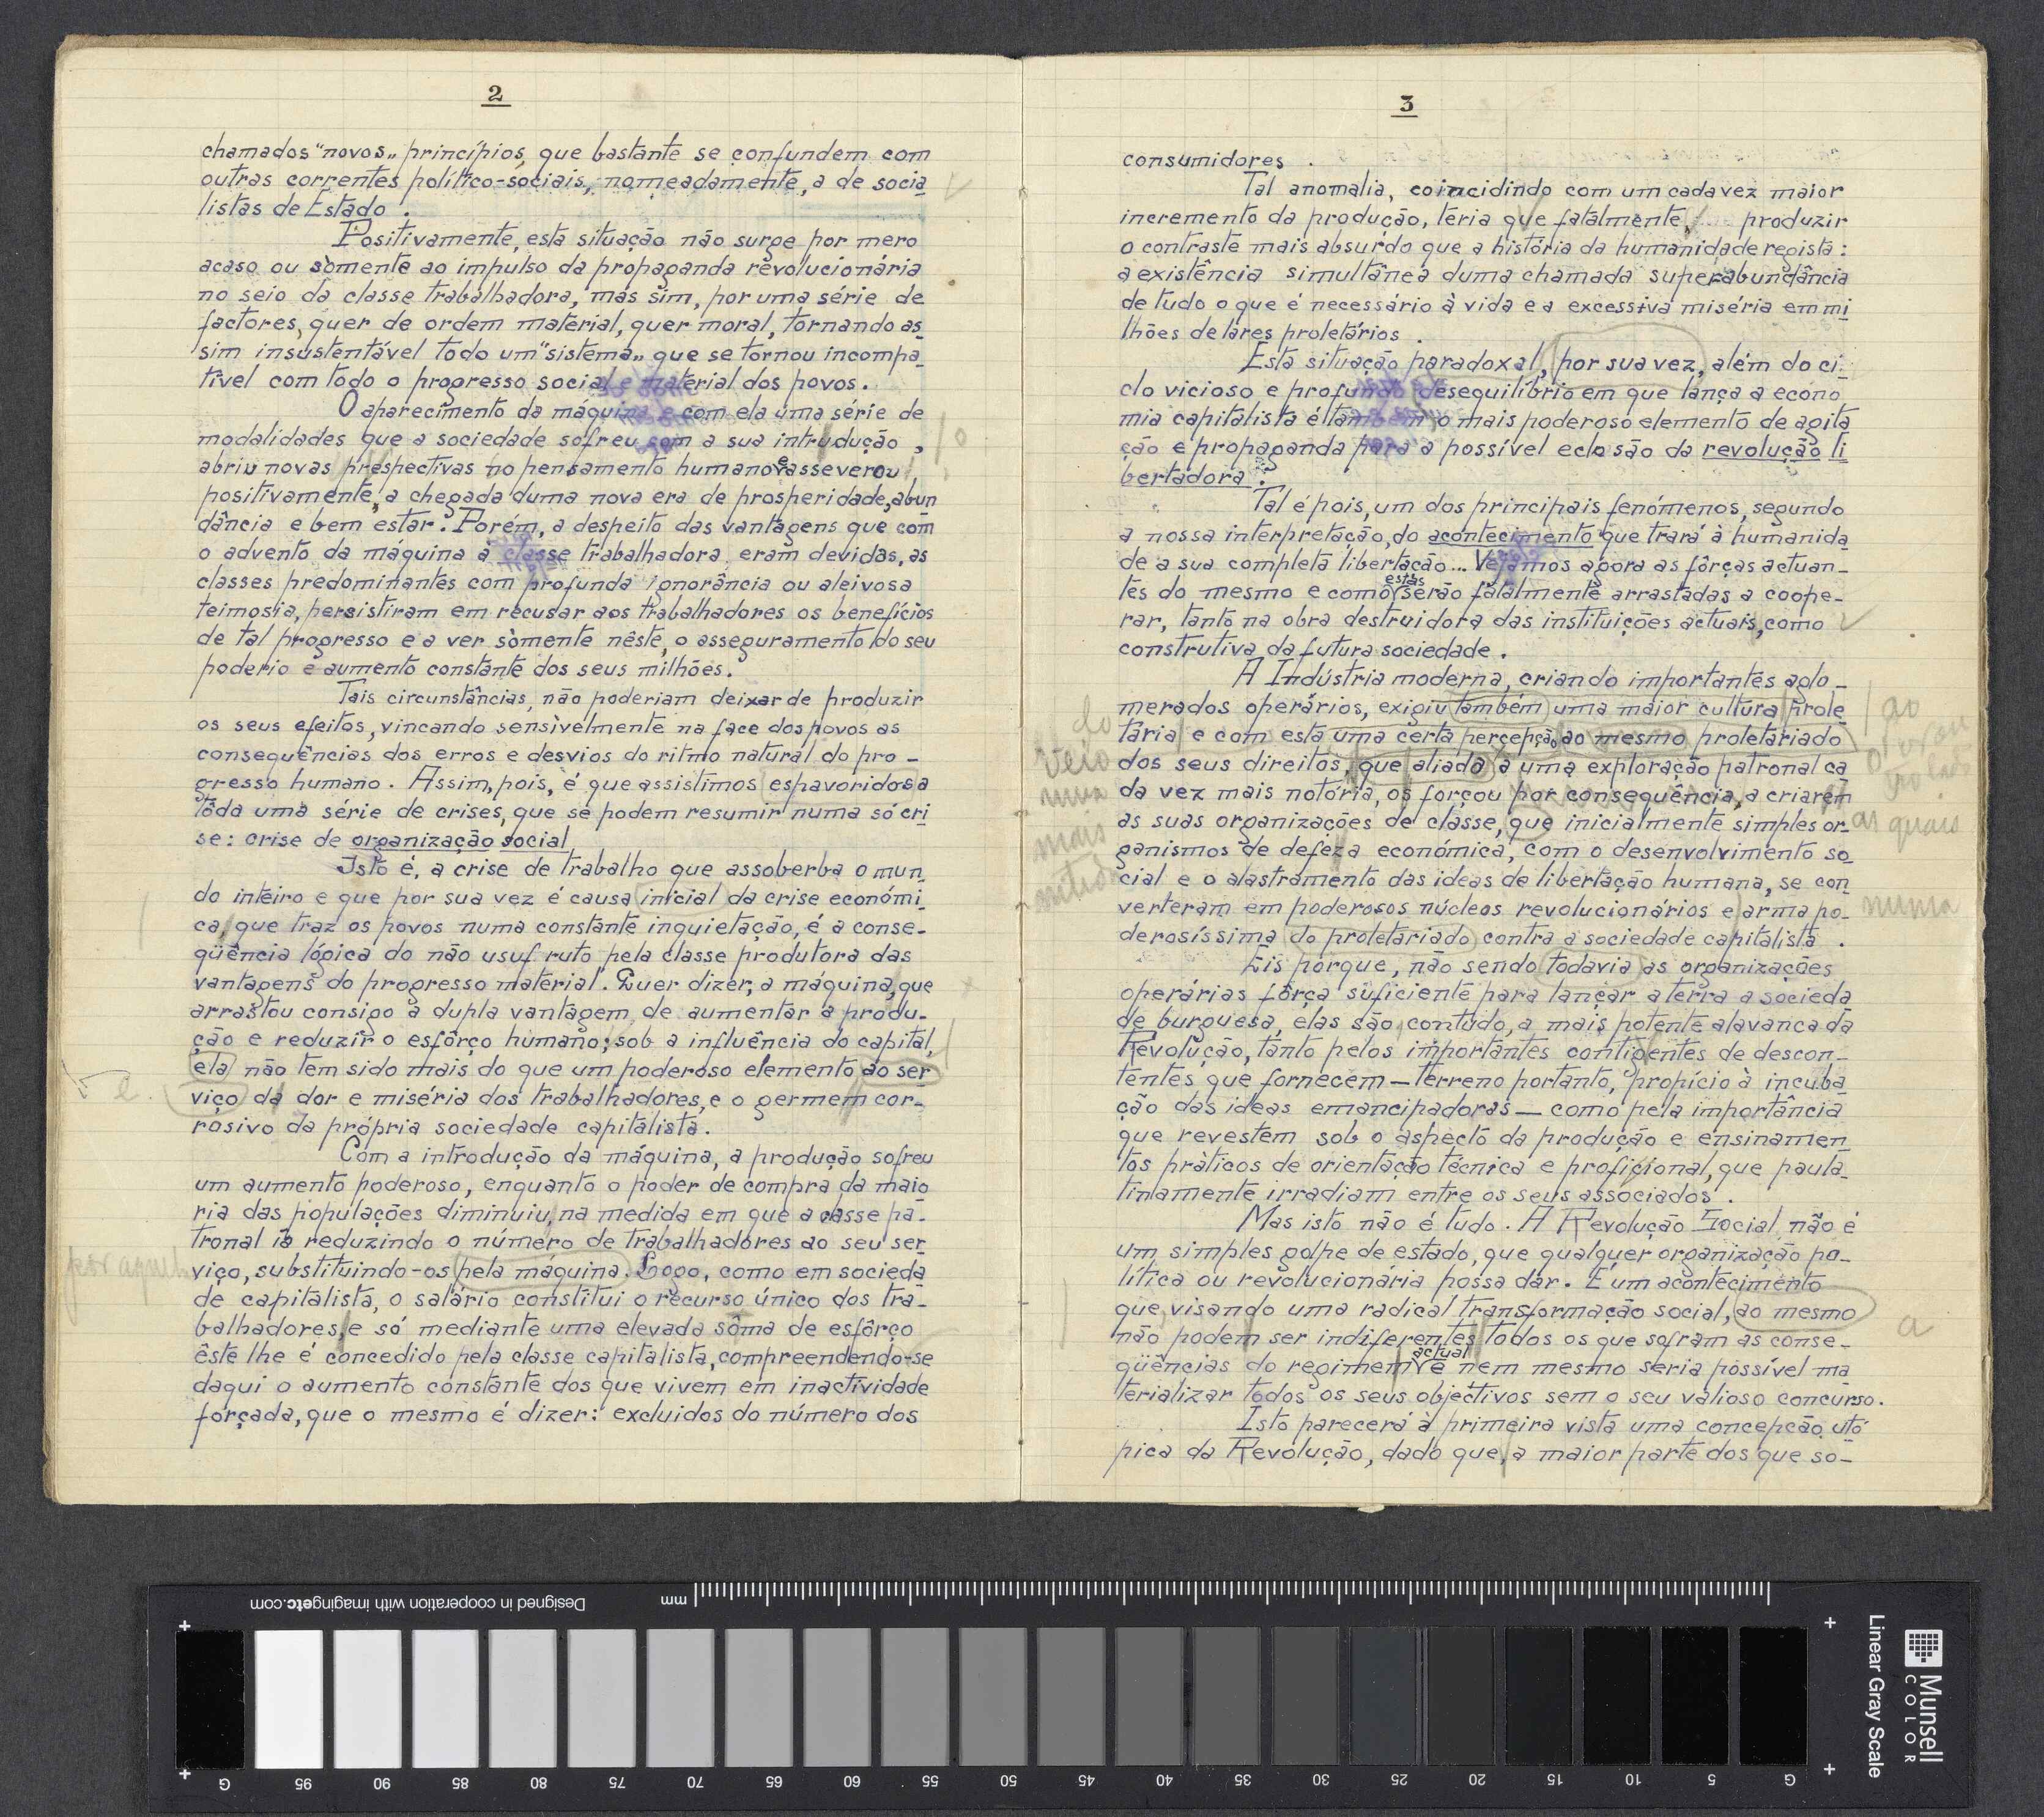 2
chamados "novos„ princípios, que bastante se confundem com
outras correntes político-sociais, nomeadamente, a de socia
listas de Estado .
Positivamente, esta situação não surge por mero
acaso ou sòmente ao impulso da propaganda revolucionária
no seio da classe trabalhadora, mas sim, por uma série de
factores, quer de ordem material, quer moral, tornando as
sim insustentável todo um "sistema„ que se tornou incompa
tível com todo o progresso social e material dos povos.
O aparecimento da máquina e com ela uma série de
modalidades que a sociedade sofreu com a sua introdução , o
abriu novas prespectivas no pensamento humano e asseverou
positivamente, a chegada duma nova era de prosperidade, abun
dância e bem estar. Porém, a despeito das vantagens que com
o advento da máquina à classe trabalhadora eram devidas, as
classes predominantes com profunda ignorância ou aleivosa
teimosia, persistiram em recusar aos trabalhadores os benefícios
de tal progresso e a ver sòmente nêste, o asseguramento do seu
poderio e aumento constante dos seus milhões.
Tais circunstâncias, não poderiam deixar de produzir
os seus efeitos, vincando sensìvelmente na face dos povos as
consequências dos erros e desvios do ritmo natural do pro-
gresso humano. Assim, pois, é que assistimos espavoridos a
tôda uma série de crises, que se podem resumir numa só cri
se: crise de organização social
Isto é, a crise de trabalho que assoberba o mun
do inteiro e que por sua vez é causa inicial da crise económi
ca, que traz os povos numa constante inquietação, é a conse-
qüência lógica do não usufruto pela classe produtora das
vantagens do progresso material. Quer dizer, a máquina, que
arrastou consigo a dupla vantagem de aumentar a produ-
ção e reduzir o esfôrço humano; sob a influência do capital,
ela não tem sido mais do que um poderoso elemento ao ser
e. viço da dor e miséria dos trabalhadores, e o germem cor-
rosivo da própria sociedade capitalista.
Com a introdução da máquina, a produção sofreu
um aumento poderoso, enquanto o poder de compra da maio
ria das populações diminuiu, na medida em que a classe pa-
tronal ia reduzindo o número de trabalhadores ao seu ser
por aquela viço, substituindo-os pela máquina. Logo, como em socieda
de capitalista, o salário constitui o recurso único dos tra-
balhadores, e só mediante uma elevada sôma de esfôrço
êste lhe é concedido pela classe capitalista, compreendendo-se
daqui o aumento constante dos que vivem em inactividade
forçada, que o mesmo é dizer: excluidos do número dos
3
consumidores .
Tal anomalia, coincidindo com um cada vez maior
incremento da produção, teria que fatalmente, produzir
o contraste mais absurdo que a história da humanidade regista:
a existência simultânea duma chamada superabundância
de tudo o que é necessário à vida e a excessiva miséria em mi
lhões de lares proletários .
Esta situação paradoxal, por sua vez, além do ci-
clo vicioso e profundo desequilíbrio em que lança a econo
mia capitalista é também o mais poderoso elemento de agita
ção e propaganda para a possível eclosão da revolução li
bertadora .
Tal é pois, um dos principais fenómenos, segundo
a nossa interpretação, do acontecimento que trará à humanida
de a sua completa libertação... Vejamos agora as fôrças actuan-
tes do mesmo e como estas serão fatalmente arrastadas a coope-
rar, tanto na obra destruidora das instituições actuais, como
construtiva da futura sociedade .
A Indústria moderna, criando importantes aglo-
merados operários, exigiu também uma maior cultura prole ao
do
tária e com esta uma certa percepção ao mesmo proletariado
veio
dos seus direitos, que aliada a uma exploração patronal ca
da vez mais notória, os forçou por consequência, a criarem
as suas organizações de classe, que inicialmente simples or- as quais
mais
ganismos de defeza económica, com o desenvolvimento so
cial e o alastramento das ideas de libertação humana, se con
verteram em poderosos núcleos revolucionários e arma po- numa
derosíssima do proletariado contra a sociedade capitalista .
Eis porque, não sendo todavia as organizações
operárias fôrça suficiente para lançar a terra a socieda
de burguesa, elas são, contudo, a mais potente alavanca da
Revolução, tanto pelos importantes contigentes de descon-
tentes que fornecem — terreno portanto, propício à incuba
ção das ideas emancipadoras — como pela importância
que revestem sob o aspecto da produção e ensinamen
tos pràticos de orientação técnica e proficional, que paula-
tinamente irradiam entre os seus associados .
Mas isto não é tudo. A Revolução Social não é
um simples golpe de estado, que qualquer organização po-
lítica ou revolucionária possa dar. É um acontecimento
que, visando uma radical transformação social, ao mesmo
não podem ser indiferentes todos os que sofram as conse- a
qüências do regimem actual e nem mesmo seria possível ma
terializar todos os seus objectivos sem o seu valioso concurso.
Isto parecerá à primeira vista uma concepção utó
pica da Revolução, dado que, a maior parte dos que so-
Designed in cooperation with imagingetc.com
mm
G 95 90 85 80 75 70 65 60 55 50 45 40 35 30 25 20 15 10 5 G
Munsell
COLOR
Linear Gray Scale